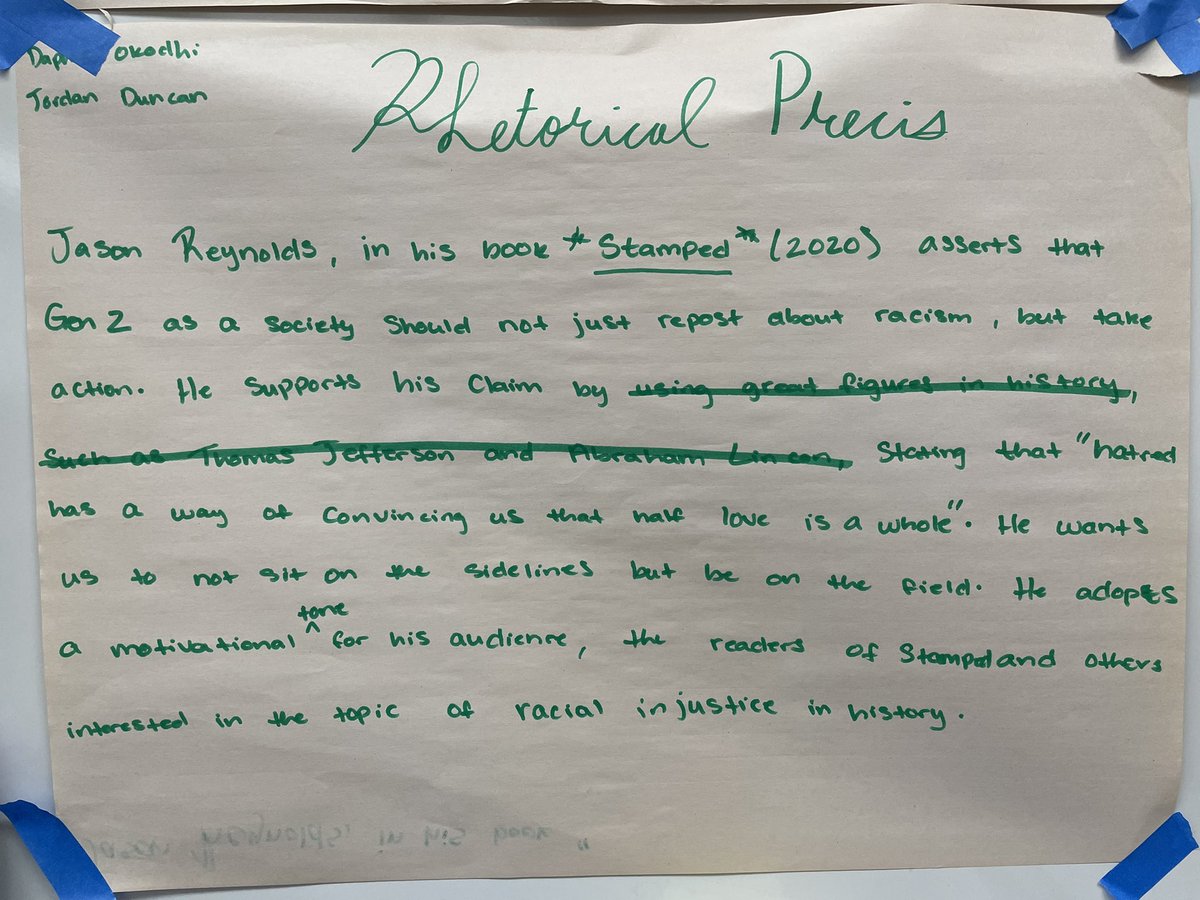 Okodhi
Jordan Duncan
Rhetorical Precis
Jason Reynolds, in his book *Stamped* (2020) asserts that
Gen Z as a society should not just repost about racism, but take
action. He supports his claim by using great figures in history,
such as Thomas Jefferson and Abraham Lincon, stating that "hatred
has a way of convincing us that half love is a whole". He wants
us to not sit on the sidelines but be on the field. He adopts
a motivational tone for his audience, the readers of Stamped and others
interested in the topic of racial injustice in history.